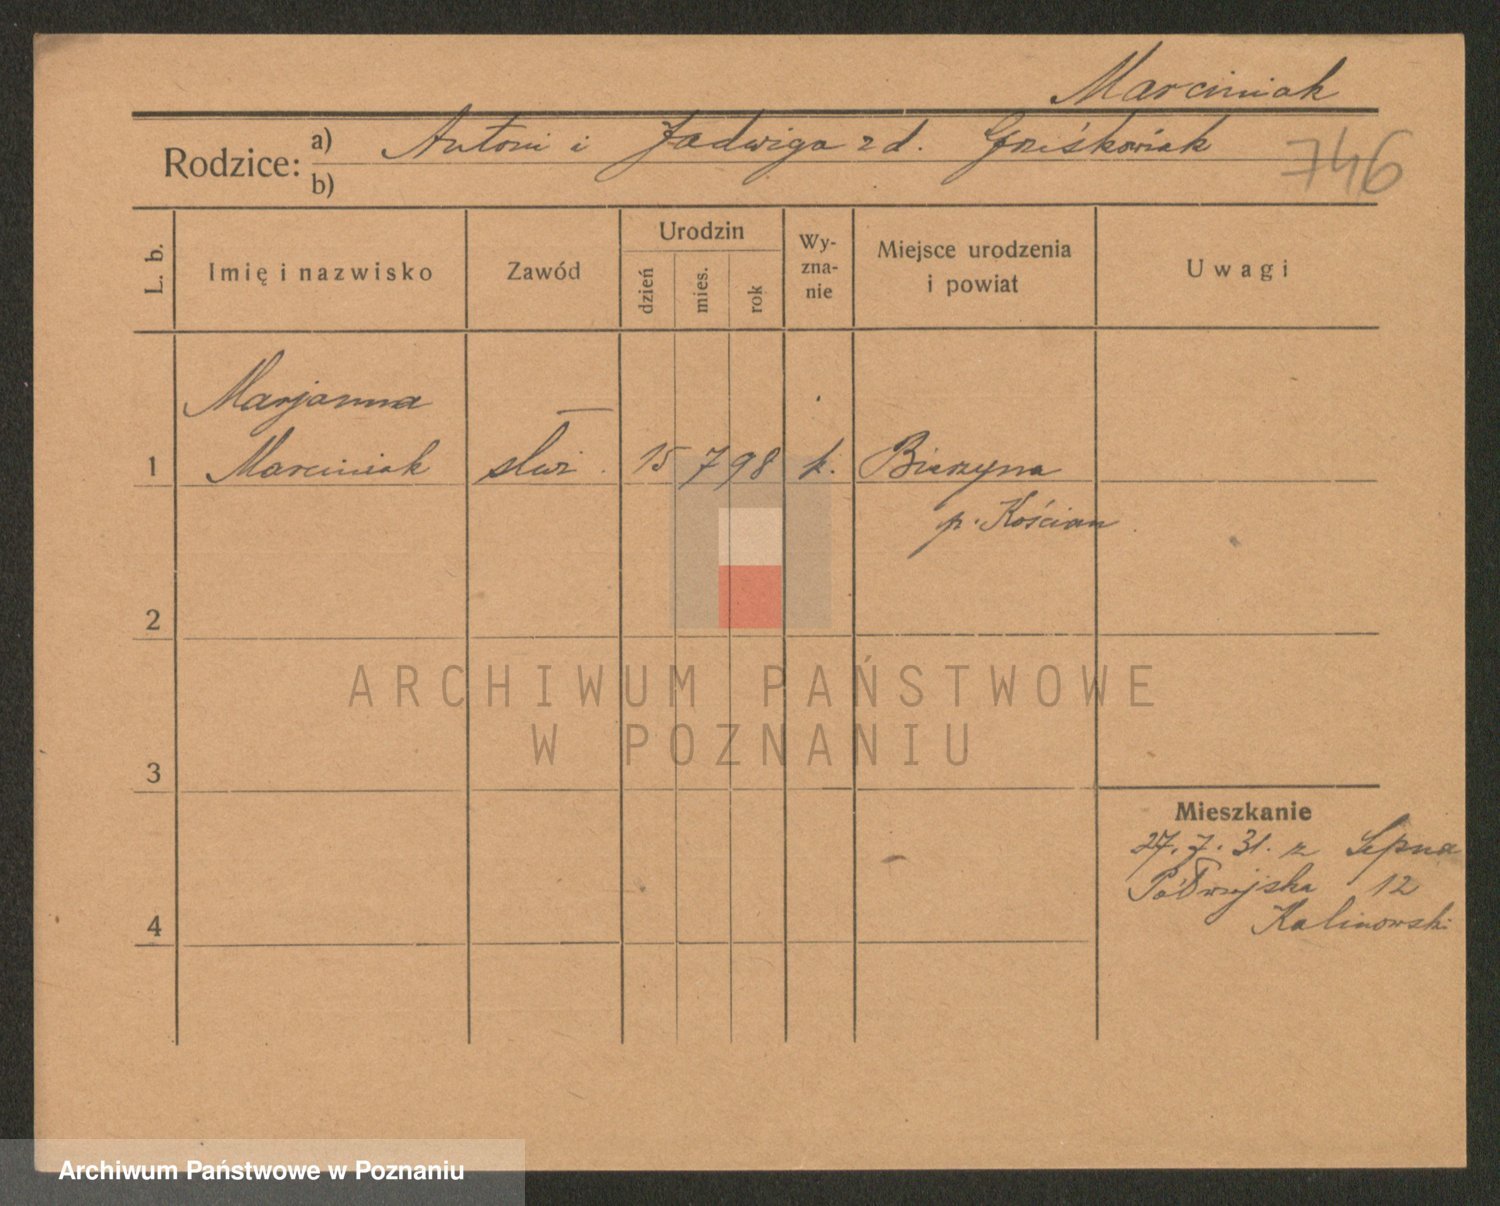 Marciniak
Rodzice: a) Antoni i Jadwiga z d.
746
b)
L. b. Imię i nazwisko Zawód Urodzin dzień mies. rok Wy-zna-nie Miejsce urodzenia i powiat Uwagi
Marjanna
1 Marciniak służ. 15 7 98 k. Bierzyna
p. Kościan
2
ARCHIWUM PAŃSTWOWE
W POZNANIU
3
Mieszkanie
27. 7. 31. z Sepna
Półwiejska 12
4 Kalinowski
Archiwum Państwowe w Poznaniu